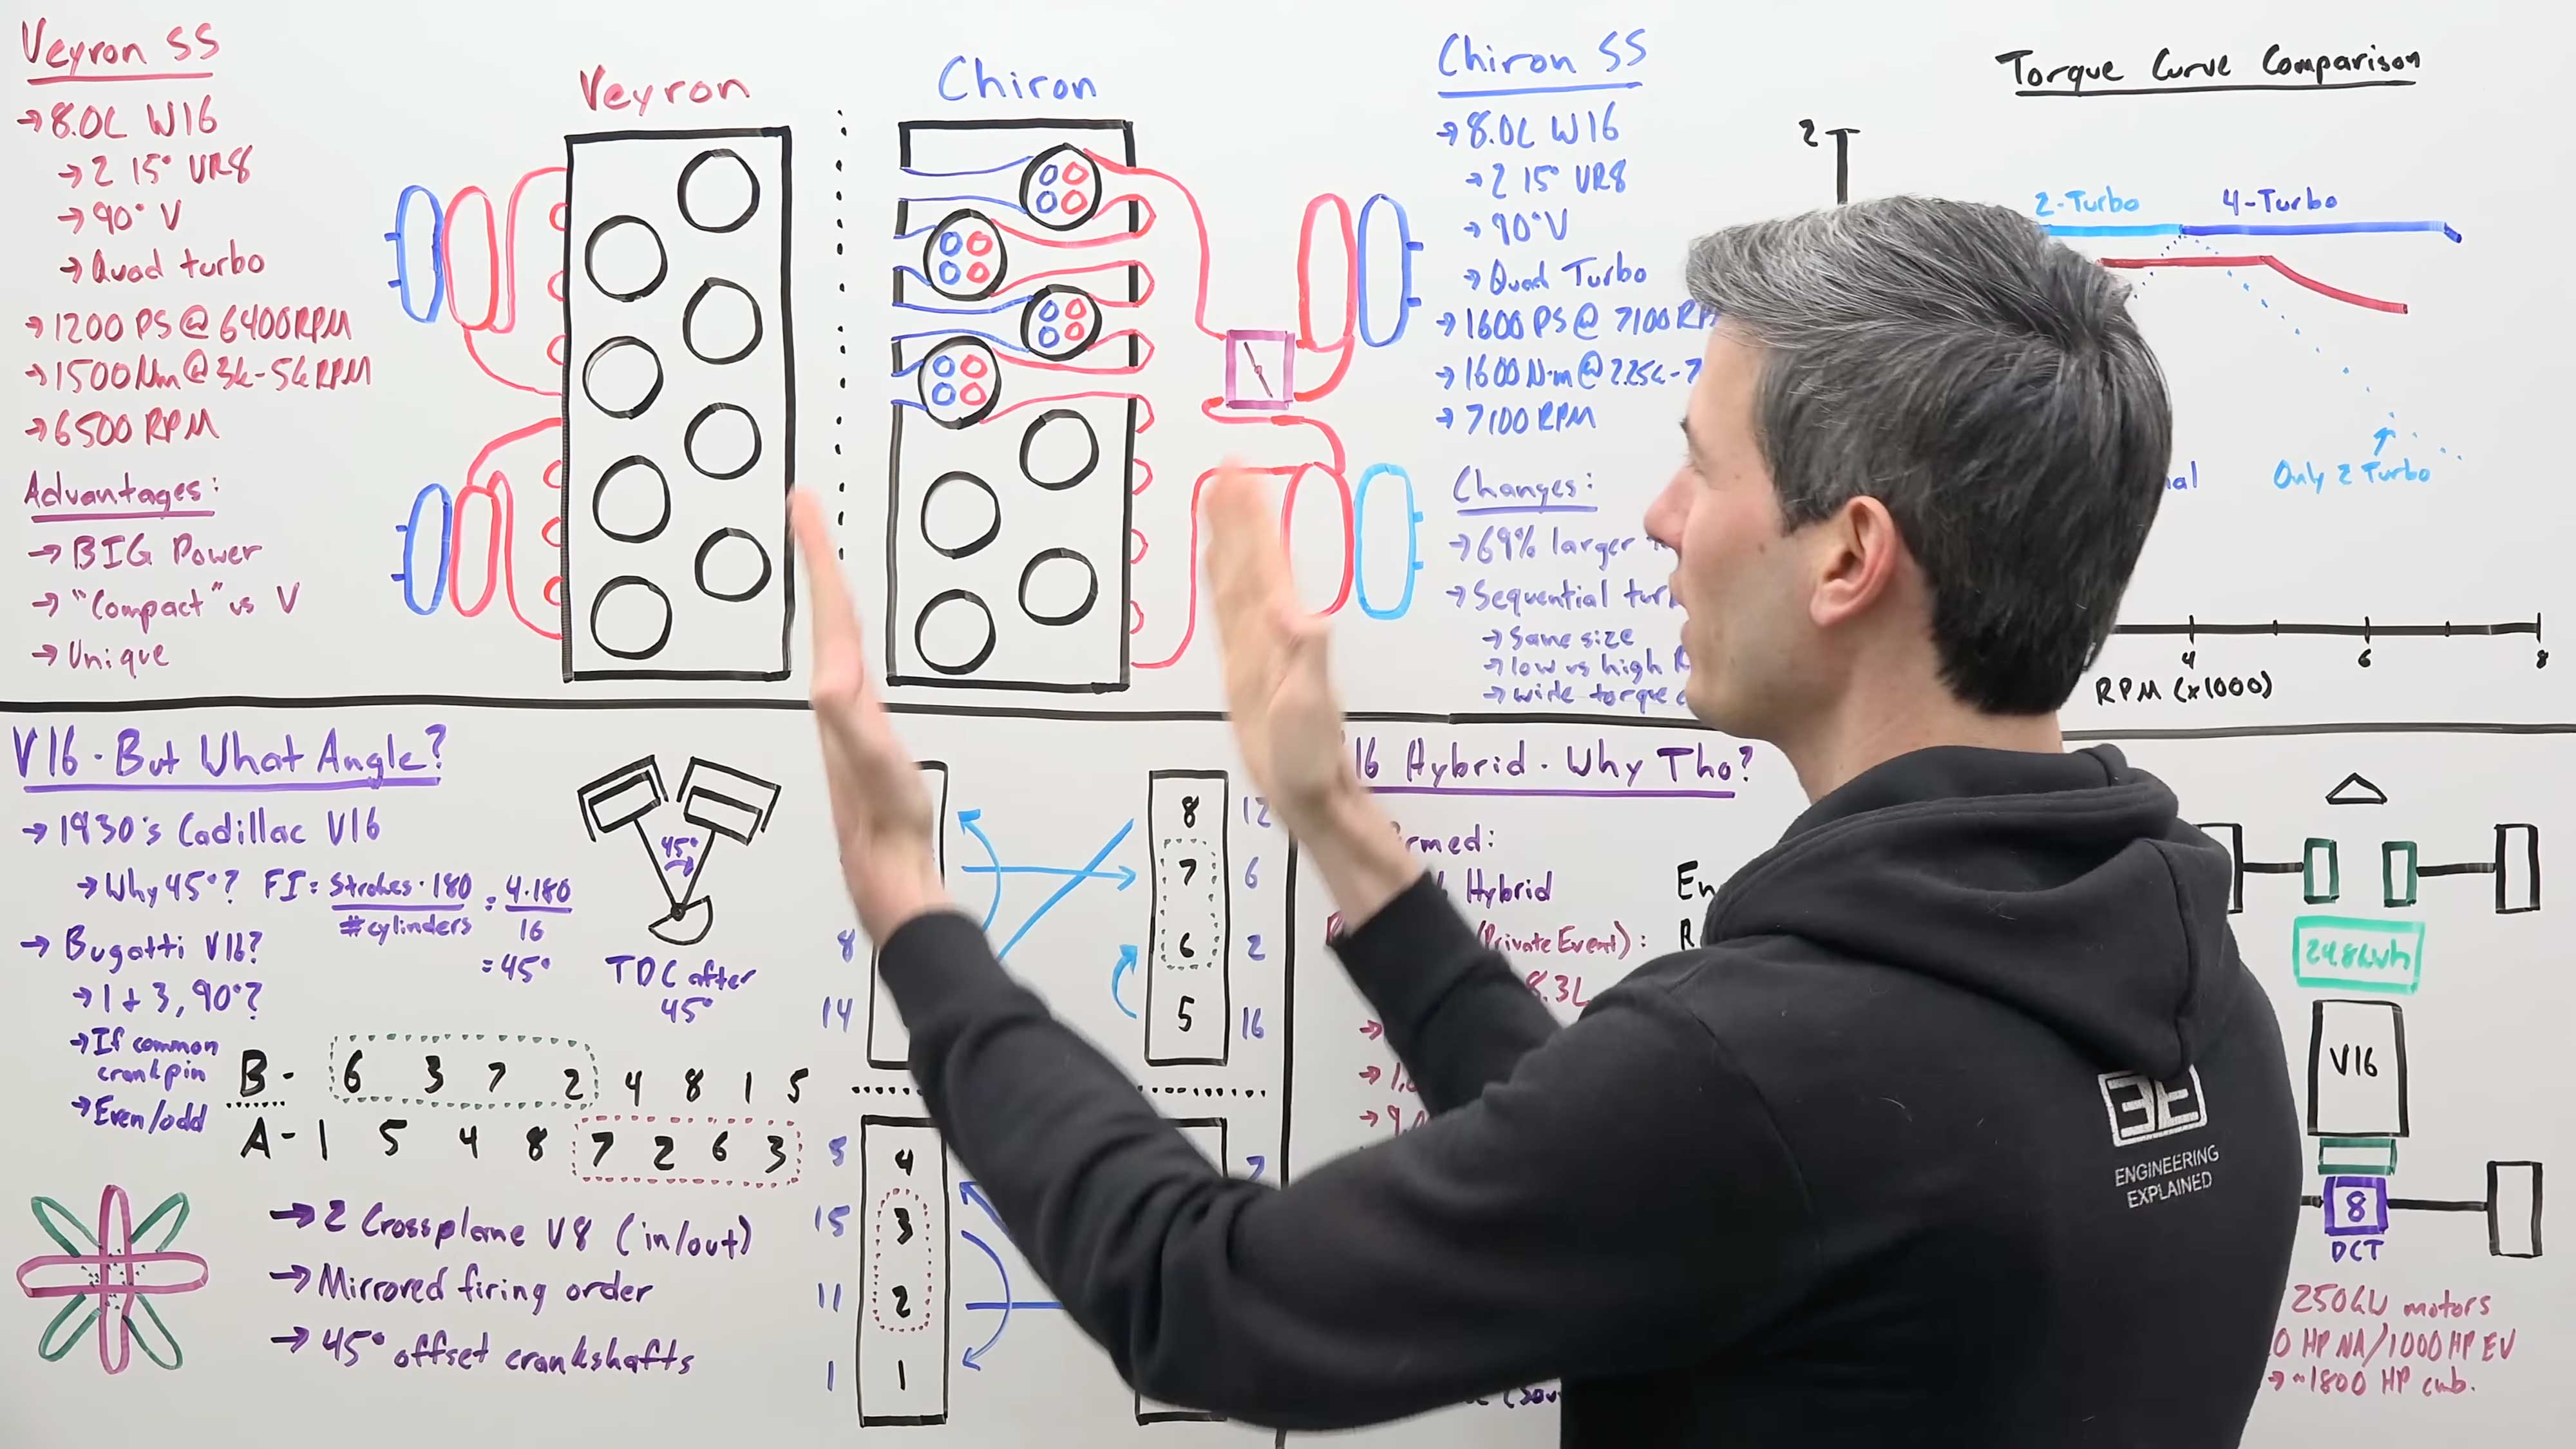 Veyron SS
→ 8.0L W16
→ 2 15° VR8
→ 90° V
→ Quad turbo
→ 1200 PS @ 6400RPM
→ 1500Nm @ 3k-5k RPM
→ 6500 RPM
Advantages:
→ BIG Power
→ "Compact" vs V
→ Unique
Veyron
Chiron
Chiron SS
→ 8.0L W16
→ 2 15° VR8
→ 90° V
→ Quad Turbo
→ 1600 PS @ 7100 RP
→ 1600 N·m @ 2.25k-7
→ 7100 RPM
Changes:
→ 69% larger
→ Sequential tur
→ Same size
→ low vs high R
→ wide torque
Torque Curve Comparison
2
2-Turbo
4-Turbo
Only 2 Turbo
4 6 8
RPM (x1000)
V16 - But What Angle?
→ 1930's Cadillac V16
→ Why 45°? FI = Strokes · 180 / #cylinders = 4·180 / 16
= 45°
→ Bugatti V16?
→ 1 + 3, 90°?
→ If common
crankpin
→ Even/odd
45°
TDC after
45°
B - 6 3 7 2 4 8 1 5
A - 1 5 4 8 7 2 6 3
→ 2 Crossplane V8 (in/out)
→ Mirrored firing order
→ 45° offset crankshafts
8
14
8 12
7 6
6 2
5 16
5 4
15 3
11 2
1 1
7
16 Hybrid - Why Tho?
rmed:
Hybrid
(Private Event):
8.3L
En
R
24.8kWh
V16
8
DCT
250kW motors
0 HP NA/1000 HP EV
→ ~1800 HP cmb.
ENGINEERING
EXPLAINED